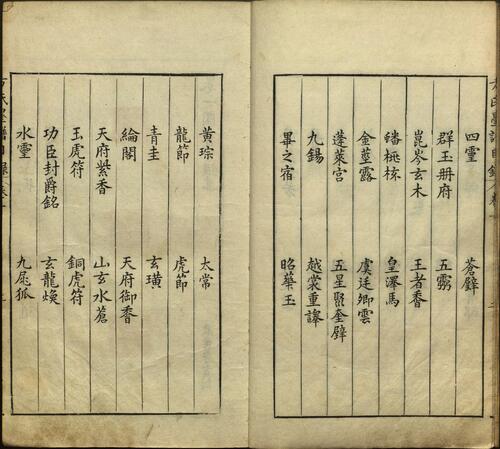 四靈 蒼璧
群玉冊府 五雲
崑岑玄木 王者香
蟠桃核 皇澤馬
金莖露 虞廷卿雲
蓬萊宮 五星聚奎璧
九錫 越裳重譯
畢之宿 昭華玉
黃琮 太常
龍節 虎節
青圭 玄璜
綸閣 天府御香
天府紫香 山玄水蒼
玉虎符 銅虎符
功臣封爵銘 玄龍煥
水靈 九尾狐